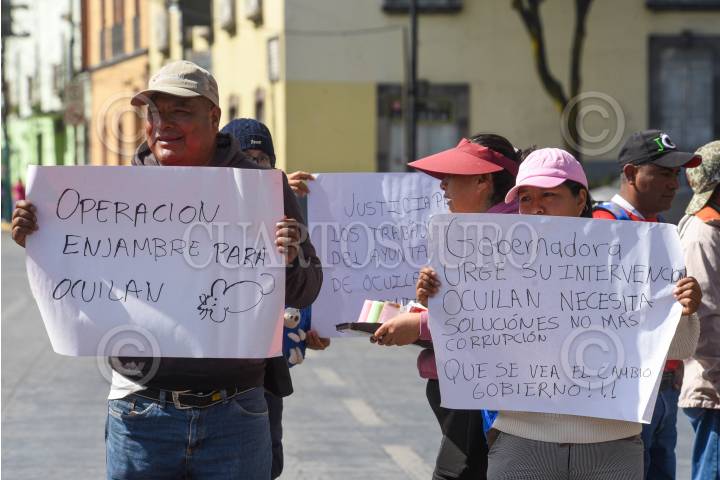 OPERACION
ENJAMBRE PARA
OCUILAN
JUSTICIA P
LOS TRABA
DEL AYUNT
DE OCUILA
Gobernadora
URGE SU INTERVENCION
OCUILAN NECESITA
SOLUCIÓNES NO MÁS
CORRUPCIÓN
QUE SE VEA EL CAMBIO
GOBIERNO !!!
CUARTOSCURO